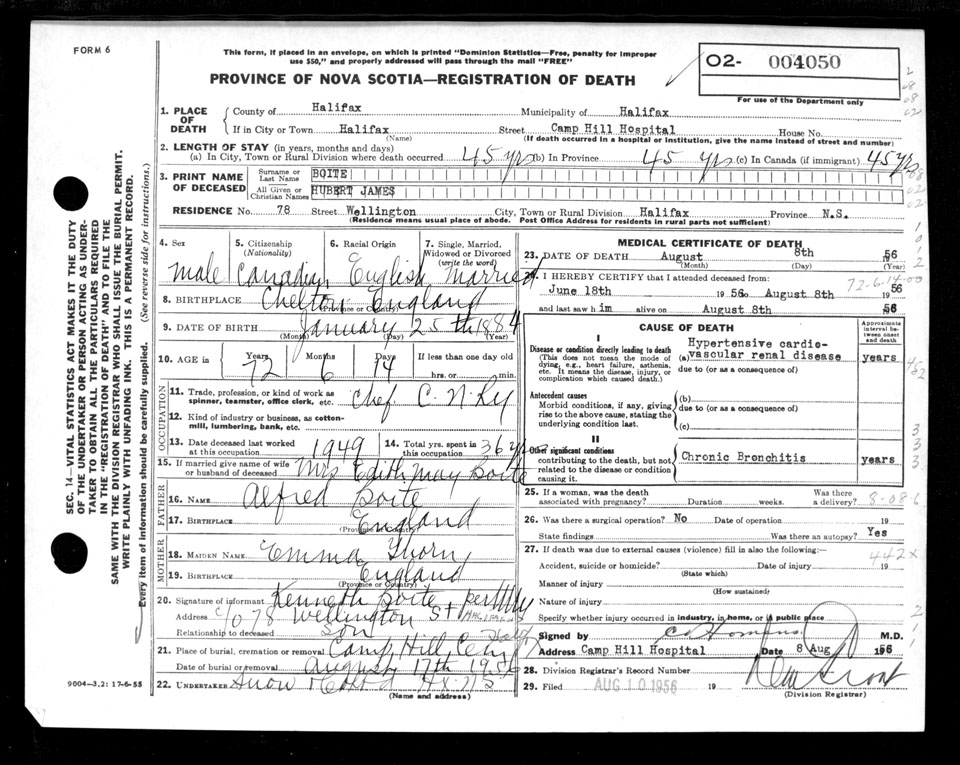 FORM 6
This form, if placed in an envelope, on which is printed "Dominion Statistics—Free, penalty for improper
use $50," and properly addressed will pass through the mail "FREE"
PROVINCE OF NOVA SCOTIA—REGISTRATION OF DEATH
02- 004050
For use of the Department only
1. PLACE OF DEATH
County of Halifax Municipality of Halifax
If in City or Town Halifax Street Camp Hill Hospital House No.
(Name) (If death occurred in a hospital or institution, give the name instead of street and number)
2. LENGTH OF STAY (in years, months and days)
(a) In City, Town or Rural Division where death occurred 45 yrs (b) In Province 45 yrs (c) In Canada (if immigrant) 45 yrs
3. PRINT NAME OF DECEASED
Surname or Last Name BOITE
All Given or Christian Names HUBERT JAMES
RESIDENCE No. 78 Street Wellington City, Town or Rural Division Halifax Province N.S.
(Residence means usual place of abode. Post Office Address for residents in rural parts not sufficient)
4. Sex 5. Citizenship (Nationality) 6. Racial Origin 7. Single, Married, Widowed or Divorced (write the word)
Male Canadian English Married
8. BIRTHPLACE England
(Province or Country)
9. DATE OF BIRTH January 25th 1884
(Month) (Day) (Year)
10. AGE in Years Months Days If less than one day old
72 6 14 hrs. or min.
OCCUPATION
11. Trade, profession, or kind of work as spinner, teamster, office clerk, etc. Chef C.N.Ry
12. Kind of industry or business, as cotton-mill, lumbering, bank, etc.
13. Date deceased last worked at this occupation 1949 14. Total yrs. spent in this occupation 36 yrs
15. If married give name of wife or husband of deceased Mrs Edith May Boite
FATHER
16. NAME Alfred Boite
17. BIRTHPLACE England
(Province or Country)
MOTHER
18. MAIDEN NAME Emma Thorn
19. BIRTHPLACE England
(Province or Country)
20. Signature of informant Kenneth Boite per
Address c/o 78 Wellington St
Relationship to deceased Son
21. Place of burial, cremation or removal Camp Hill Cem
Date of burial or removal August 17th 1956
22. UNDERTAKER Snow
(Name and address)
9004—3.2: 17-6-55
MEDICAL CERTIFICATE OF DEATH
23. DATE OF DEATH August 8th 56
(Month) (Day) (Year)
I HEREBY CERTIFY that I attended deceased from:
72-6-14-00
June 18th 1956 to August 8th 1956
and last saw him alive on August 8th 56
CAUSE OF DEATH
Approximate interval between onset and death
I
Disease or condition directly leading to death
(This does not mean the mode of dying, e.g., heart failure, asthenia, etc. It means the disease, injury, or complication which caused death.)
(a) Hypertensive cardio-
vascular renal disease years
due to (or as a consequence of)
Antecedent causes
Morbid conditions, if any, giving rise to the above cause, stating the underlying condition last.
(b)
due to (or as a consequence of)
(c)
II
Other significant conditions
contributing to the death, but not related to the disease or condition causing it.
Chronic Bronchitis years
25. If a woman, was the death associated with pregnancy? Duration weeks. Was there a delivery?
8-08-6
26. Was there a surgical operation? No Date of operation 19
State findings Was there an autopsy? Yes
27. If death was due to external causes (violence) fill in also the following:
442X
Accident, suicide or homicide? Date of injury 19
(State which)
Manner of injury
(How sustained)
Nature of injury
Specify whether injury occurred in industry, in home, or in public place
Signed by M.D.
Address Camp Hill Hospital Date 8 Aug 1956
28. Division Registrar's Record Number
29. Filed AUG 10 1956 19
(Division Registrar)
SEC. 14—VITAL STATISTICS ACT MAKES IT THE DUTY
OF THE UNDERTAKER OR PERSON ACTING AS UNDER-
TAKER TO OBTAIN ALL THE PARTICULARS REQUIRED
IN THE "REGISTRATION OF DEATH" AND TO FILE THE
SAME WITH THE DIVISION REGISTRAR WHO SHALL ISSUE THE BURIAL PERMIT.
WRITE PLAINLY WITH UNFADING INK. THIS IS A PERMANENT RECORD.
Every item of information should be carefully supplied. (See reverse side for instructions.)